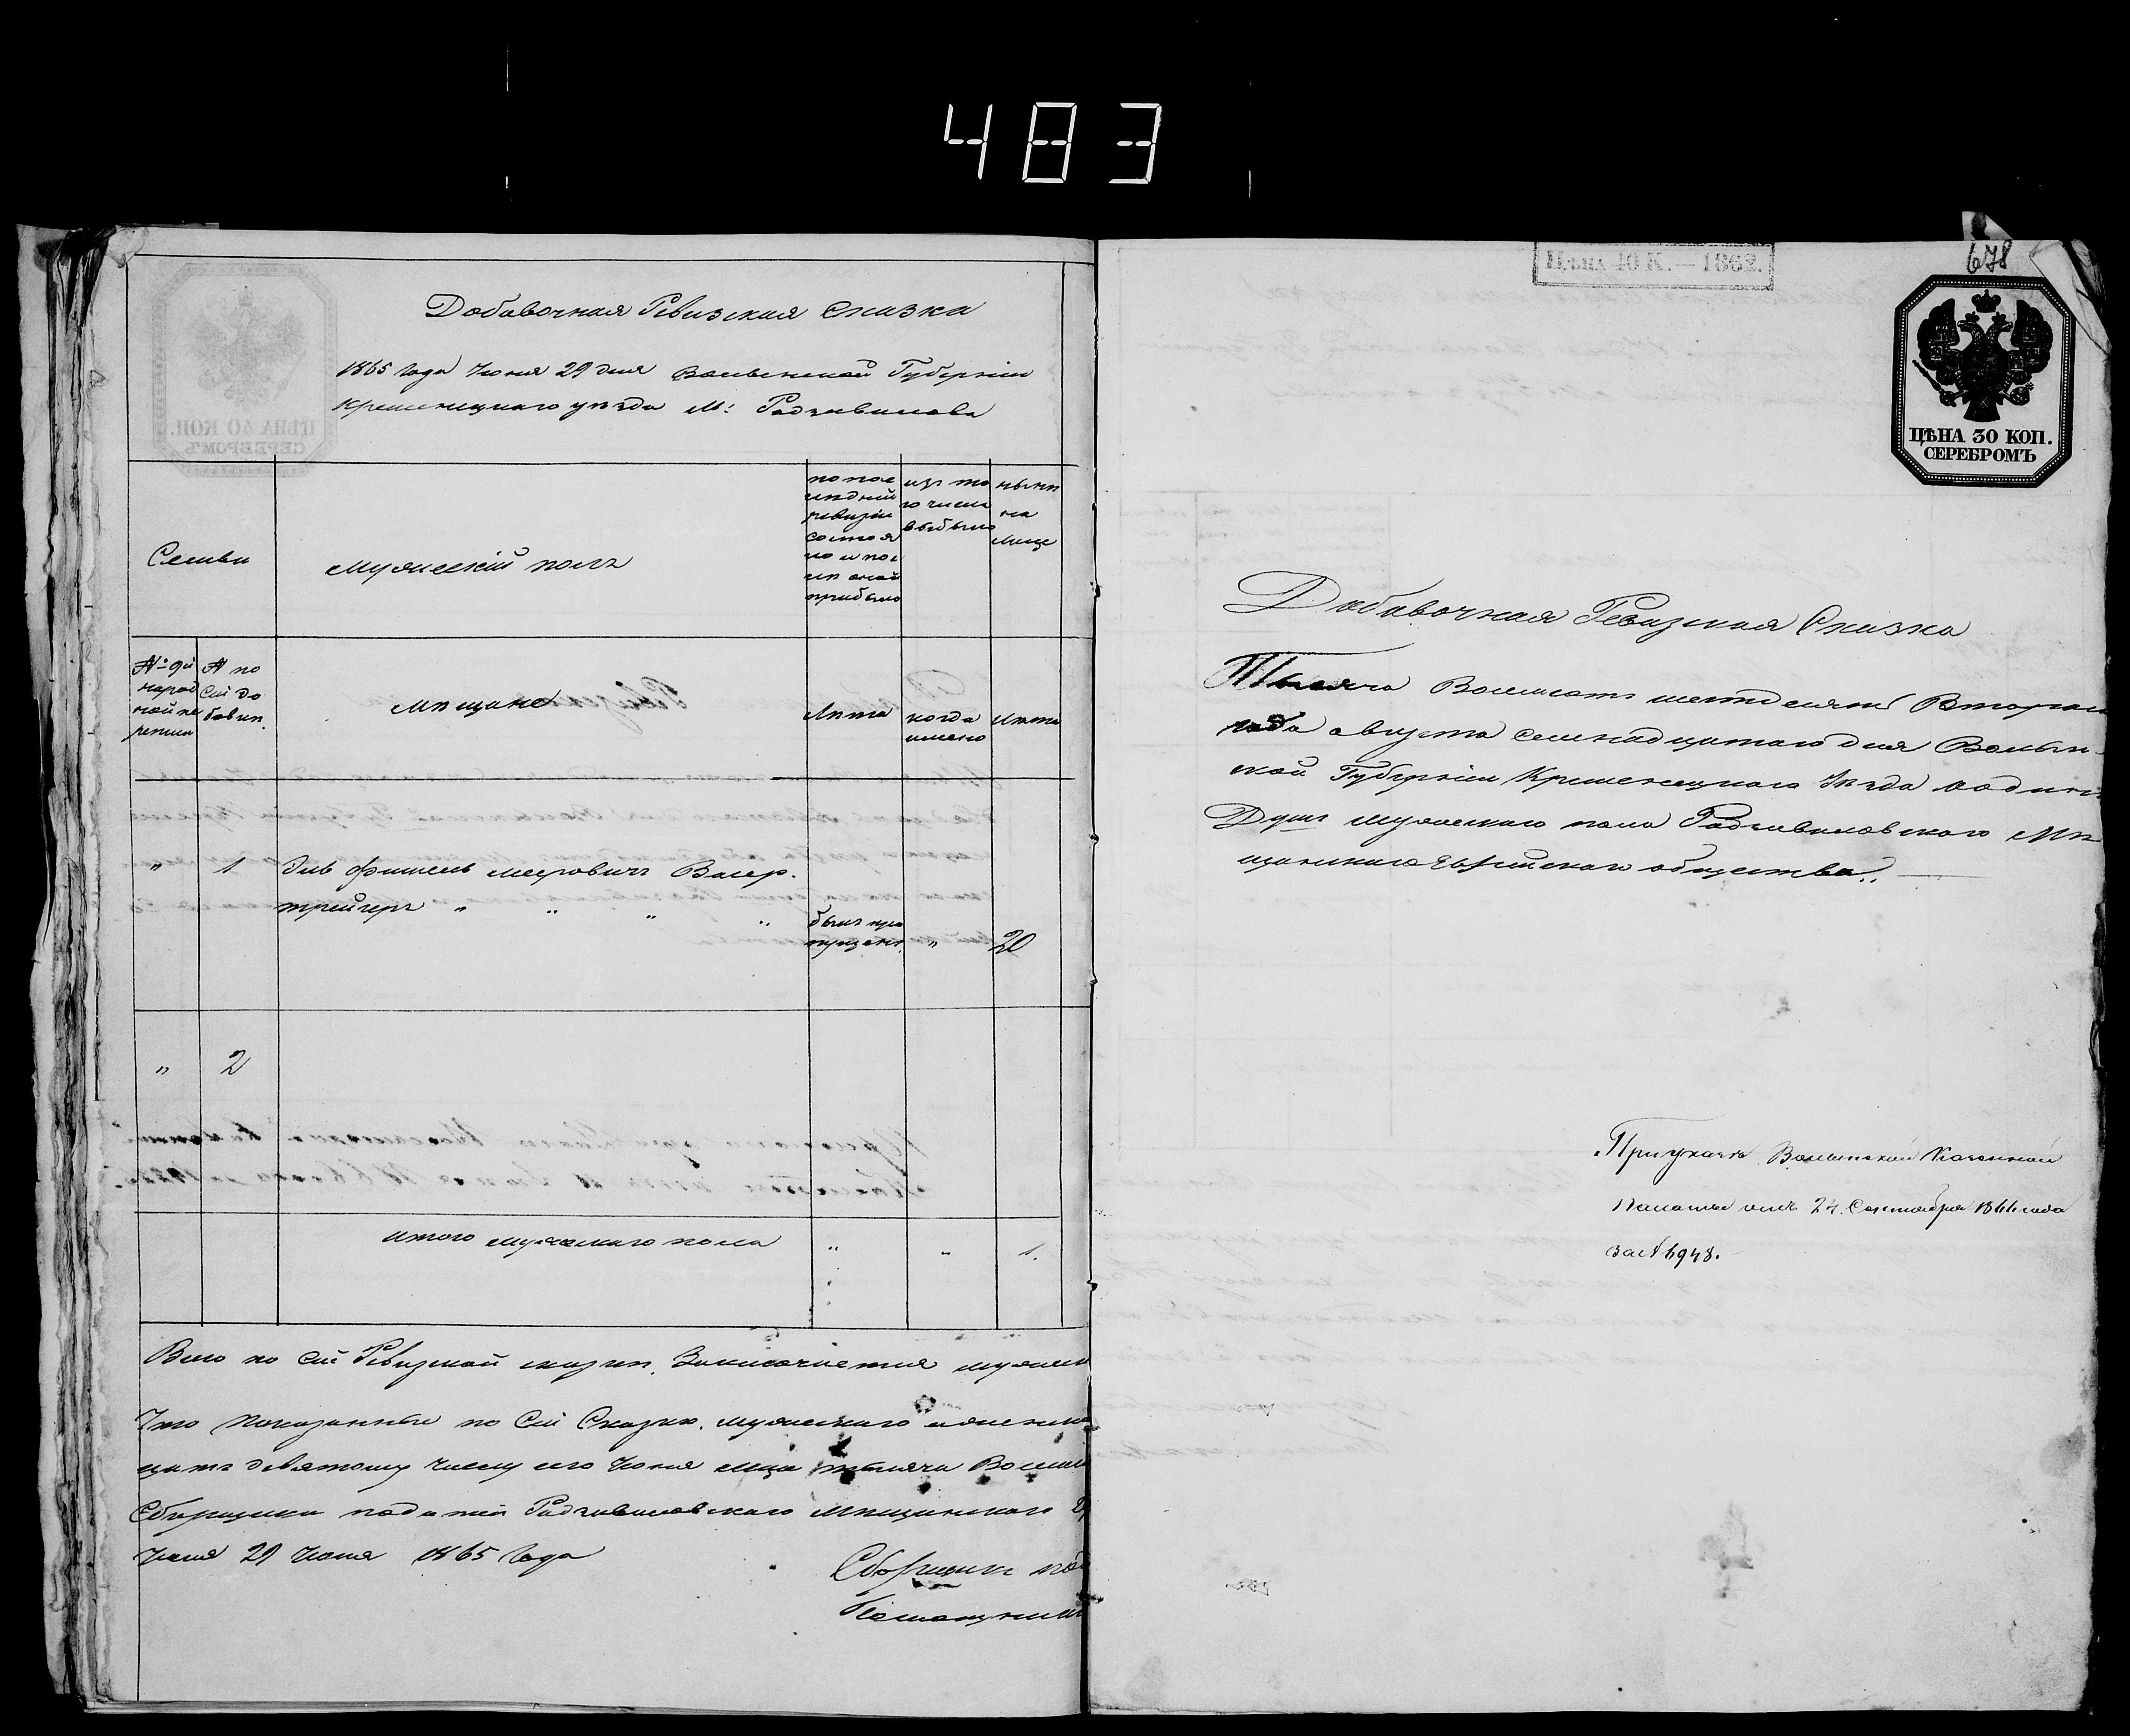 483
Добавочная Ревизская Сказка
1865 года Июня 29 дня Волынской Губерніи
Кременецкаго уѣзда М: Радзивилова
Семьи
Мужескій полъ
по пос
лѣдней
ревизіи
состоя
ло и пос
лѣ оной
прибыло
изъ то
го числа
выбыло
нынѣ
на
лице
№ 9й
народ
ной пе
реписи
№ по
сей до
бавоч.
Мѣщане
Лѣта
когда
именно
лѣта
" 1 Фишель Меерович Васер-
трейгеръ " " " "
былъ про
пущенъ " 20
" 2
Итого мужескаго пола " " 1.
Всего по сей Ревизской сказкѣ, Заключается мужеск
Что показанные по Сей Сказкѣ, мужескаго и женска
цать девятому числу сего Іюня мца тысяча Восем
Сборщики податей Радзивиловскаго Мѣщанскаго
Июня 29 дня 1865 года
Сборщик под
Помощник
678
Цѣна 40 К. — 1862.
ЦѢНА 40 КОП.
СЕРЕБРОМЪ
ЦѢНА 30 КОП.
СЕРЕБРОМЪ
Добавочная Ревизская Сказка
Тысяча Восемсотъ шестдесятъ Втораго
года августа семнадцатаго дня Волын-
ской Губерніи Кременецкаго Уѣзда о одной
Душѣ мужескаго пола Радзивиловскаго Мѣ-
щанскаго Еврейскаго общества.
При указѣ Волынской Казенной
Палаты отъ 24 Сентября 1866 года
за № 6948.